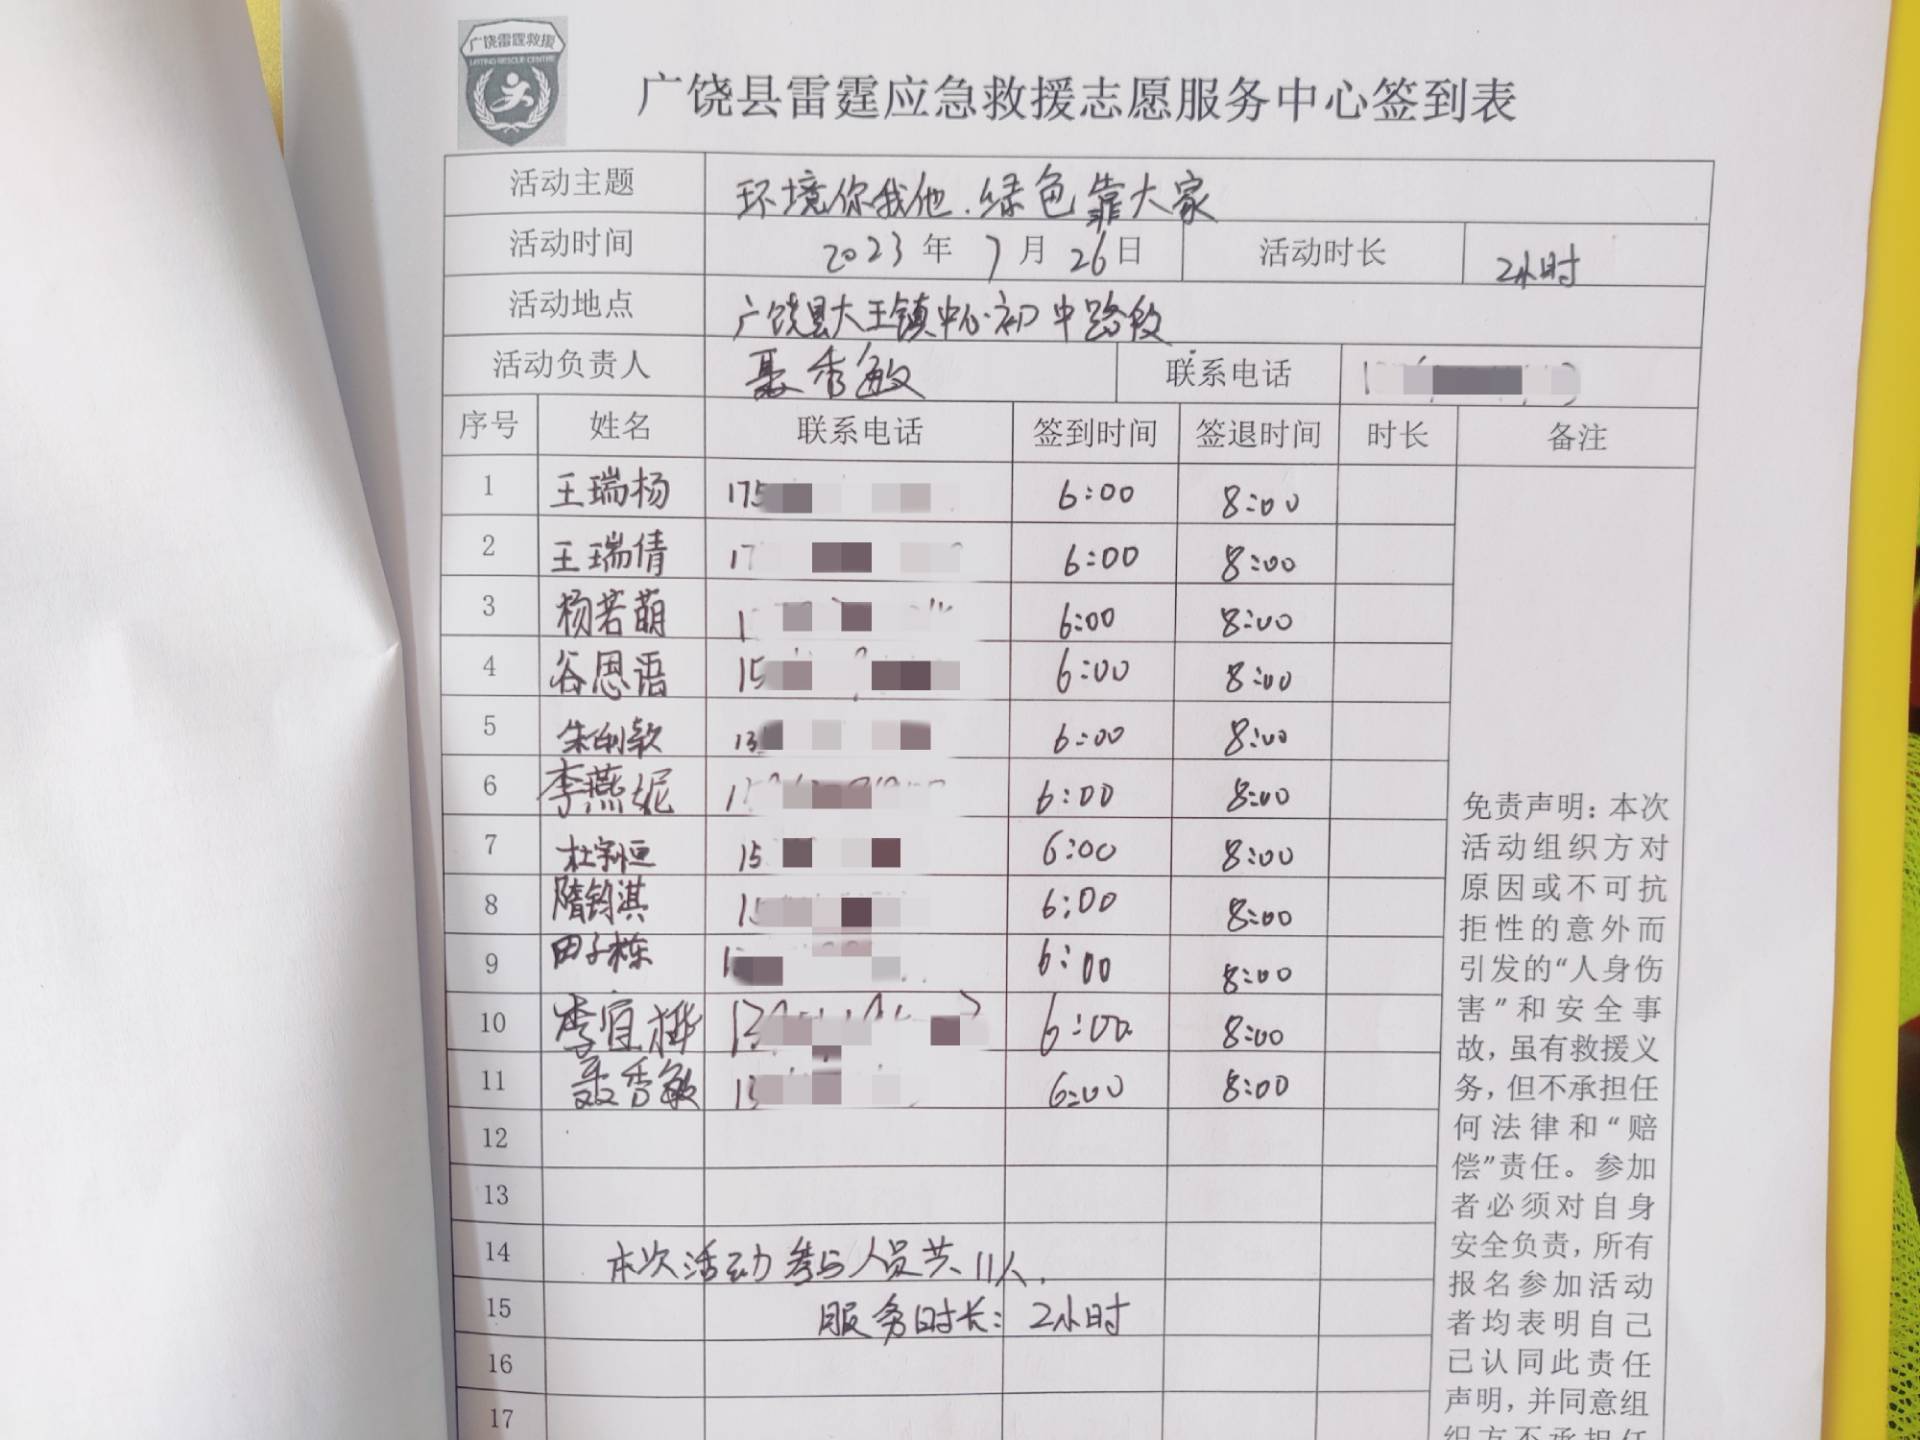 广饶雷霆救援
广饶县雷霆应急救援志愿服务中心签到表
活动主题 环境你我他.绿色靠大家
活动时间 2023年7月26日 活动时长 2小时
活动地点 广饶县大王镇中心初中路段
活动负责人 聂秀敏 联系电话
序号 姓名 联系电话 签到时间 签退时间 时长 备注
1 王瑞杨 175 6:00 8:00
2 王瑞倩 17 6:00 8:00
3 杨若萌 1 6:00 8:00
4 谷思语 15 6:00 8:00
5 13 6:00 8:00
6 李燕妮 1 6:00 8:00
7 杜宇恒 15 6:00 8:00
8 隋钧淇 1 6:00 8:00
9 田子栋 1 6:00 8:00
10 李宜桦 13 6:00 8:00
11 聂秀敏 13 6:00 8:00
12
13
14 本次活动参与人员共11人.
15 服务时长:2小时
16
17
免责声明：本次
活动组织方对
原因或不可抗
拒性的意外而
引发的“人身伤
害”和安全事
故，虽有救援义
务，但不承担任
何法律和“赔
偿”责任。参加
者必须对自身
安全负责，所有
报名参加活动
者均表明自己
已认同此责任
声明，并同意组
织方不承担任